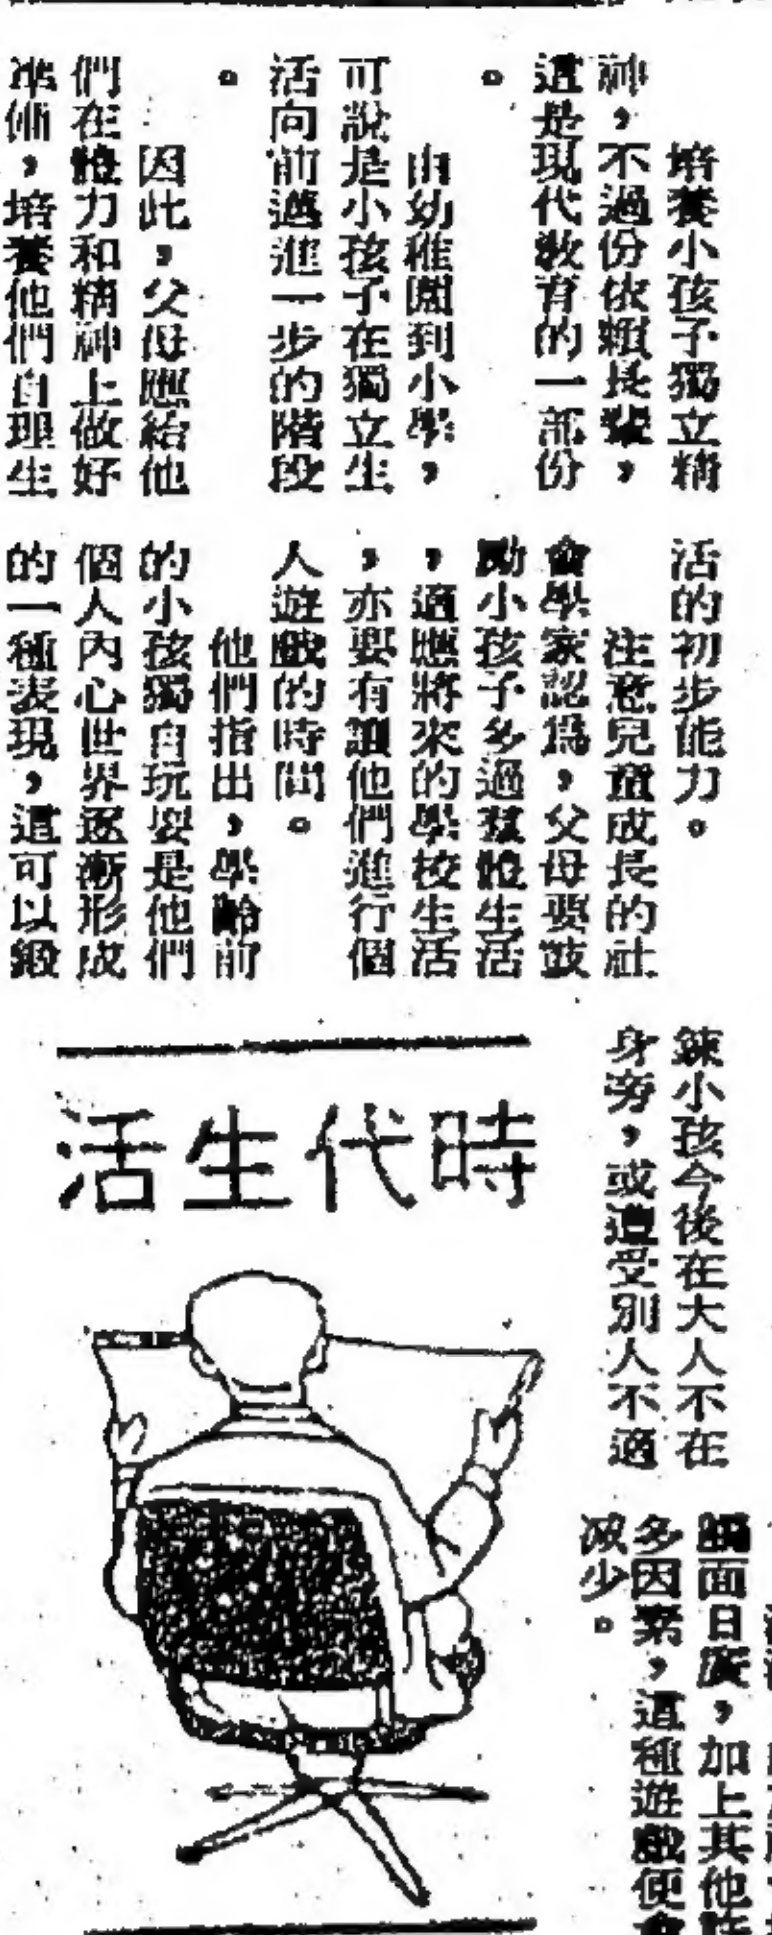 培養小孩子獨立精
神，不過份依賴長輩，
這是現代教育的一部份
。
由幼稚園到小學，
可說是小孩子在獨立生
活向前邁進一步的階段
。
因此，父母應給他
們在體力和精神上做好
準備，培養他們自理生
活的初步能力。
注意兒童成長的社
會學家認爲，父母要鼓
勵小孩子多過羣體生活
，適應將來的學校生活
，亦要有讓他們進行個
人遊戲的時間。
他們指出，學齡前
的小孩獨自玩耍是他們
個人內心世界逐漸形成
的一種表現，這可以鍛
鍊小孩今後在大人不在
身旁，或遭受別人不適
面日廣，加上其他
多因素，這種遊戲便會
減少。
時代生活